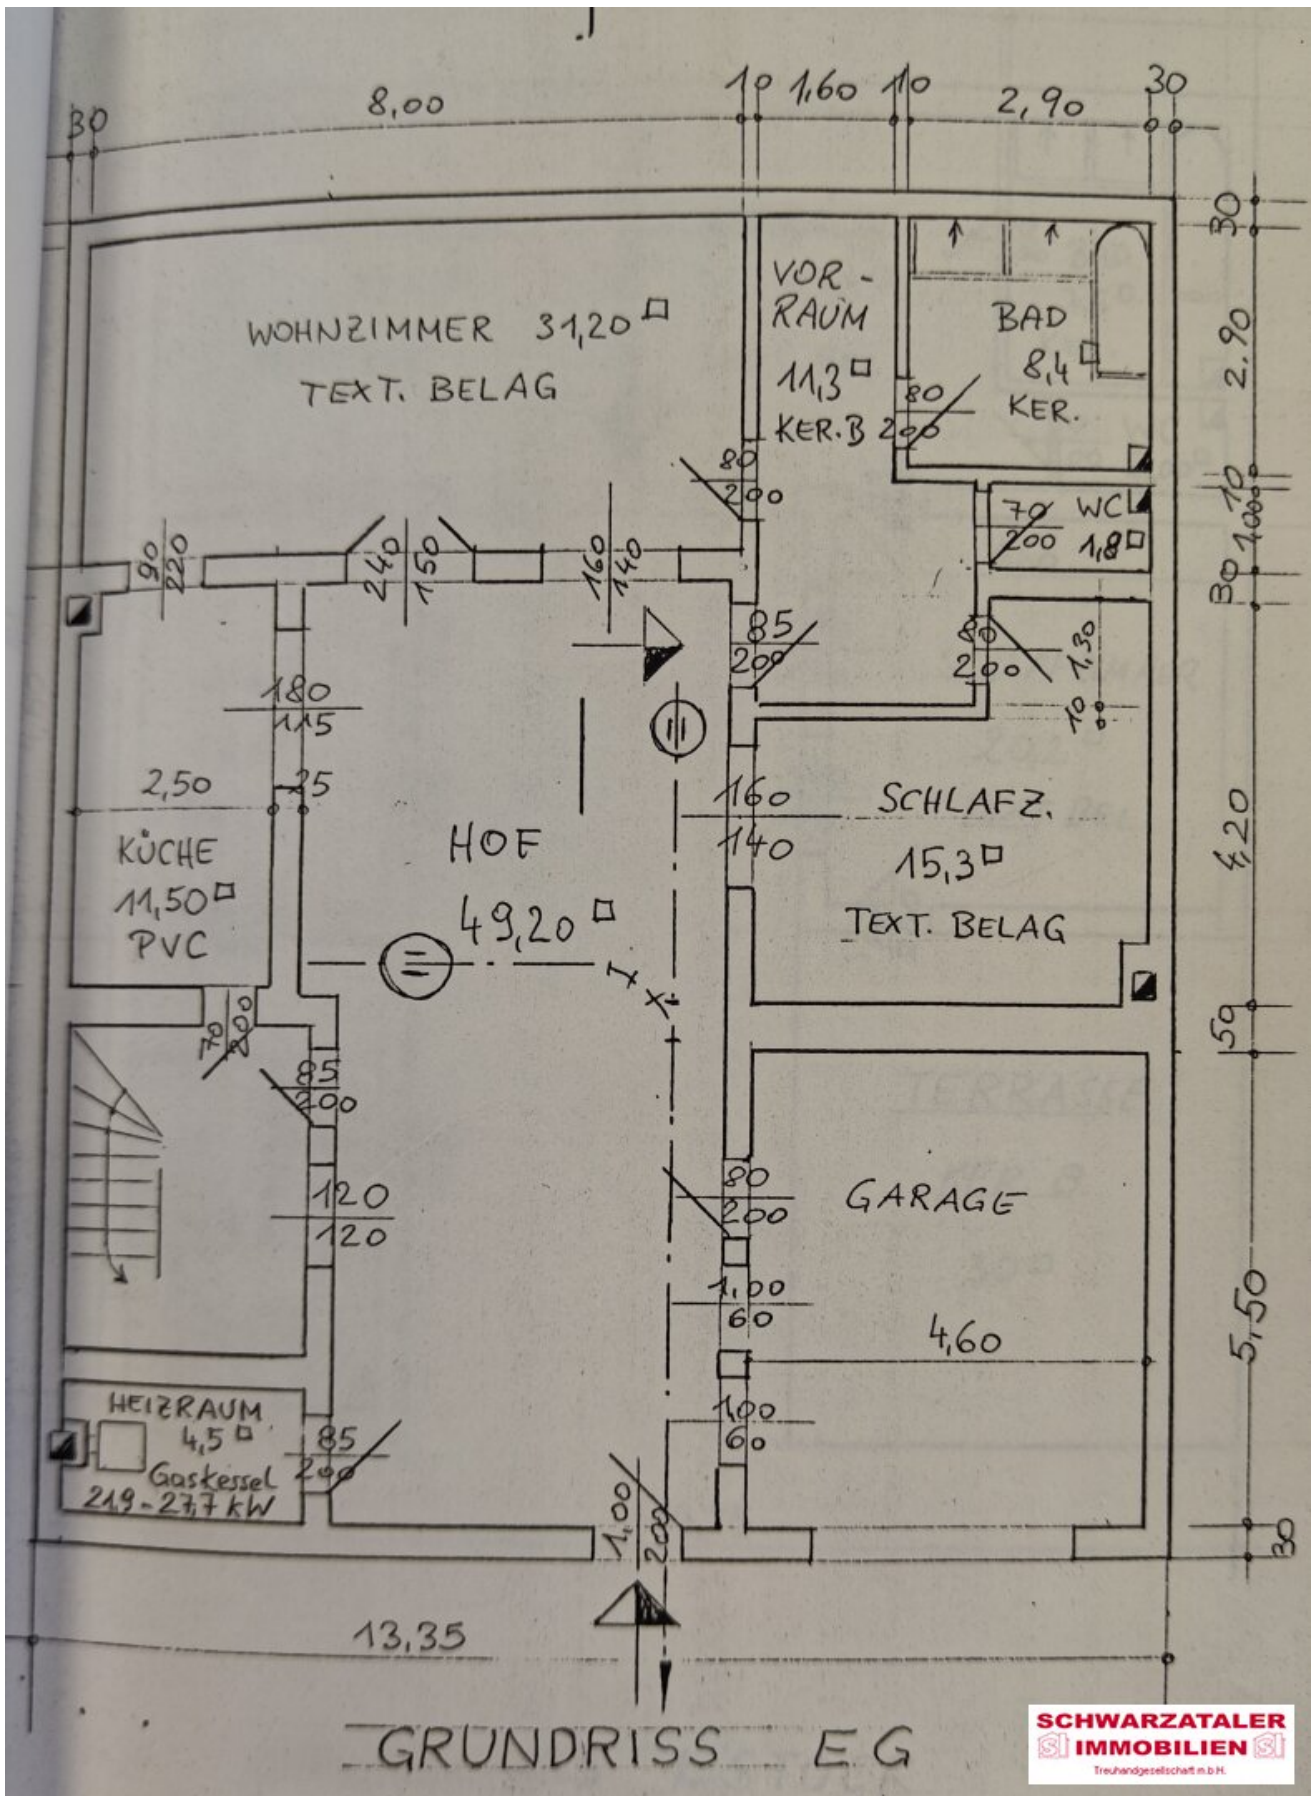 30
8,00
10
1,60
10
2,90
30
30
2.90
10
1,00
30
4,20
50
5,50
30
WOHNZIMMER 31,20
TEXT. BELAG
VOR-
RAUM
11,3
KER.B
BAD
8,4
KER.
80
200
80
200
WC
1,8
70
200
90
220
240
150
160
140
85
200
80
200
1,30
10
180
115
2,50
25
KÜCHE
11,50
PVC
HOF
49,20
160
140
SCHLAFZ.
15,3
TEXT. BELAG
70
200
85
200
120
120
80
200
GARAGE
1,00
60
4,60
1,00
60
HEIZRAUM
4,5
Gaskessel
21,9-27,7 kW
85
200
1,00
200
13,35
GRUNDRISS EG
SCHWARZATALER
SI IMMOBILIEN SI
Treuhandgesellschaft m.b.H.